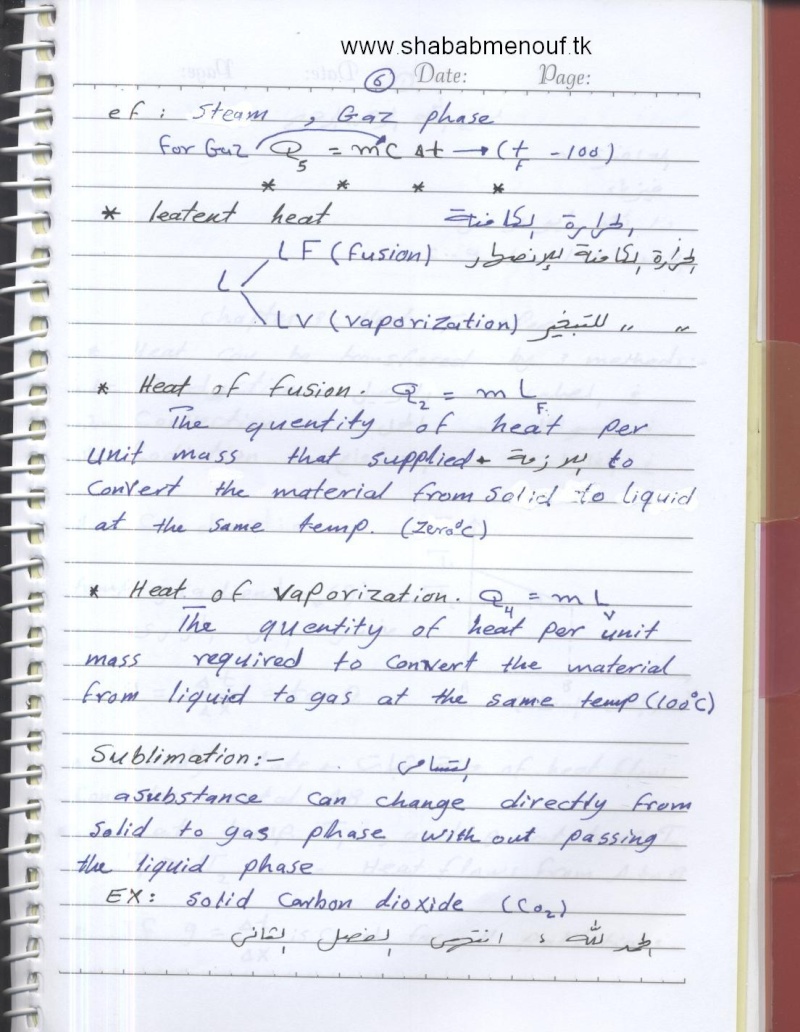 www.shababmenouf.tk
6 Date: Page:
ef: Steam, Gaz phase
For Gaz Q5 = mc Δt → (tF - 100)
* * * *
* leatent heat الحرارة الكامنة
LF (fusion) الحرارة الكامنة للإنصهار
L
LV (vaporization) للتبخير " "
* Heat of fusion. Q2 = m LF
The quentity of heat per
unit mass that supplied اللازمة to
convert the material from solid to liquid
at the same temp. (Zero°C)
* Heat of vaporization. Q4 = m Lv
The quentity of heat per unit
mass required to convert the material
from liquid to gas at the same temp (100°C)
Sublimation:- التسامى
asubstance can change directly from
solid to gas phase with out passing
the liquid phase
EX: solid carbon dioxide (CO2)
الحمد لله ، انتهى الفصل الثانى